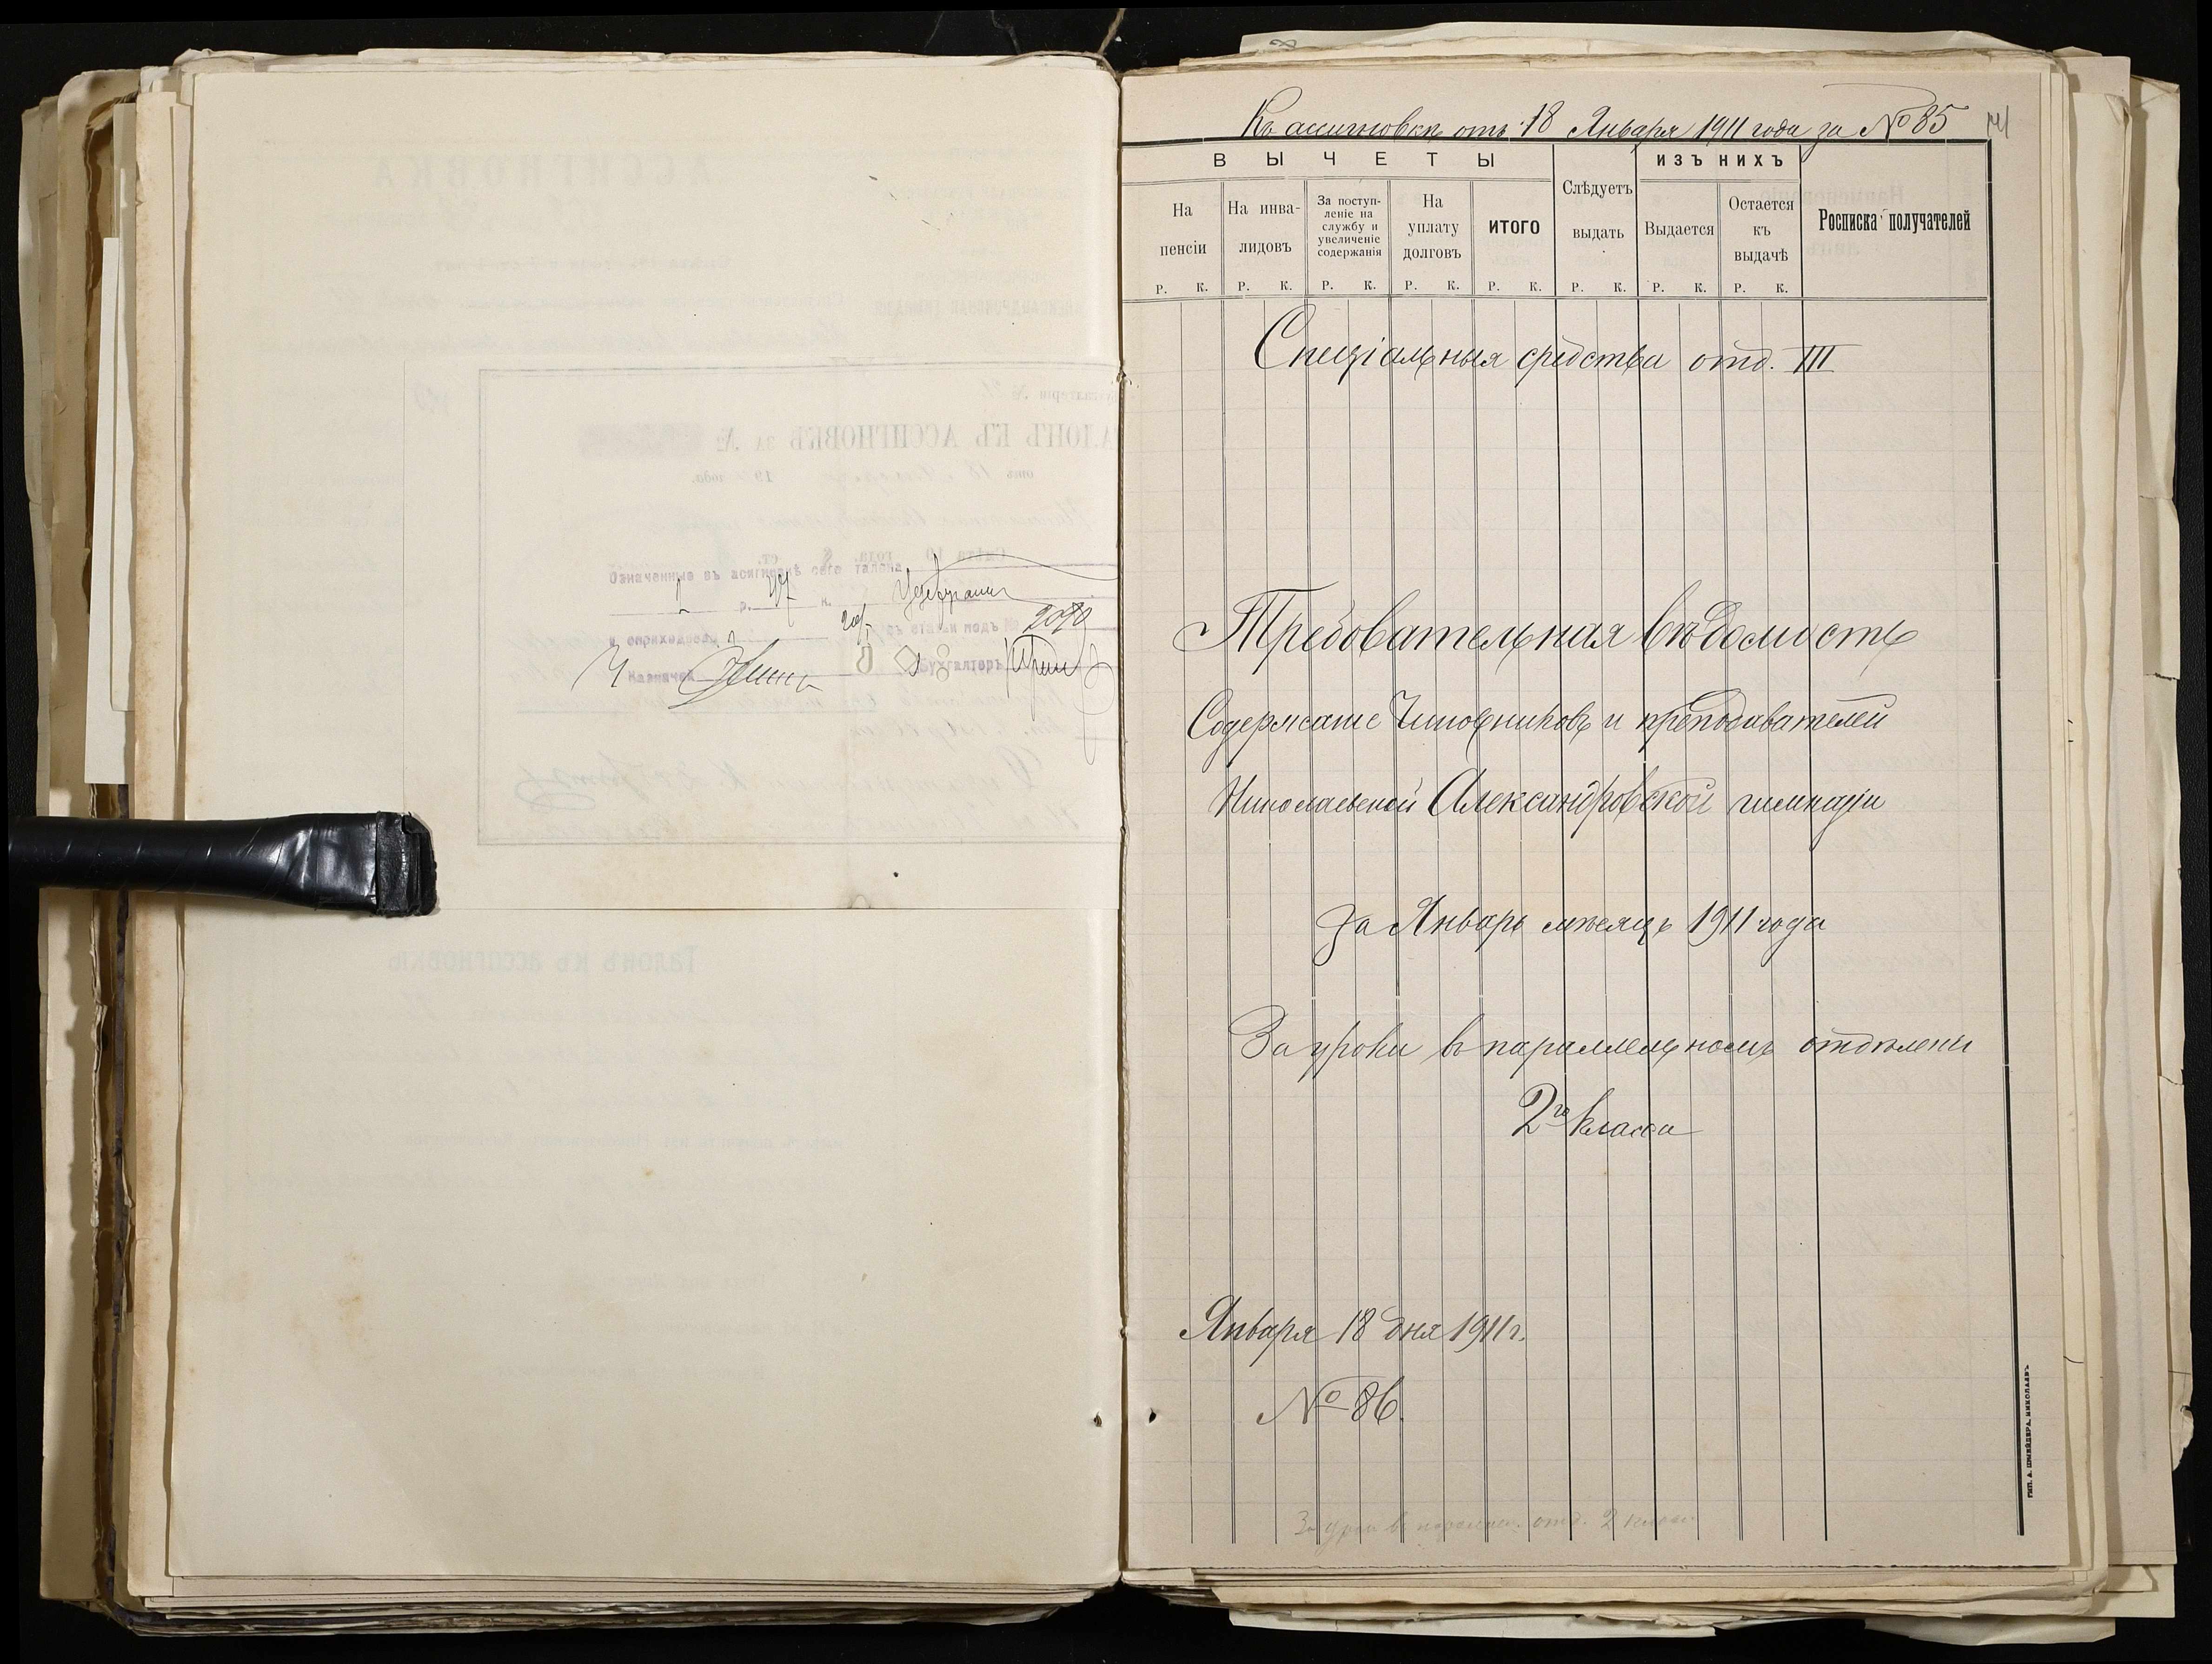 Означенные въ асигновкѣ сего талона
р. 47 к.
и оприходованы
статьи подъ № 2090
Казначей
Бухгалтеръ
Къ ассигновкѣ отъ 18 Января 1911 года за № 85
ВЫЧЕТЫ
Слѣдуетъ выдать
ИЗЪ НИХЪ
Росписка получателей
На пенсіи
На инва-
лидовъ
За поступ-
леніе на
службу и
увеличеніе
содержанія
На
уплату
долговъ
ИТОГО
Выдается
Остается
къ
выдачѣ
Р. К. Р. К. Р. К. Р. К. Р. К. Р. К. Р. К. Р. К.
Спеціальныя средства отд. III
Требовательная вѣдомость
Содержаніе Чиновниковъ и преподавателей
Николаевской Александровской гимназіи
За Январь мѣсяцъ 1911 года
За уроки въ параллельномъ отдѣленіи
2го класса
Января 18 дня 1911 г.
№ 86.
За урок въ параллел. отд. 2 класс.
ТИП. А. ШНЕЙДЕРА, НИКОЛАЕВЪ